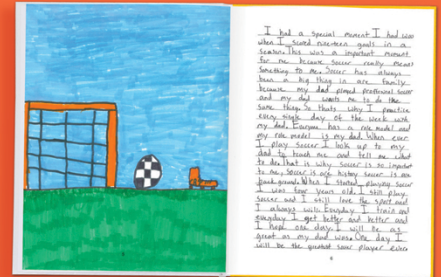 I had a special moment I had was
when I scored nine-teen goals in a
season. This was a important moment
for me because soccer really means
something to me. Soccer has always
been a big thing in are family
because my dad played proffesional soccer
and my dad wants me to do the
same thing. So thats why I practice
every single day of the week with
my dad. Everyone has a role model and
my role model is my dad. When ever
I play soccer I look up to my
dad to teach me and tell me what
to do. That is why soccer is so important
to me. Soccer is are history soccer is are
back ground. When I started playing soccer
I was four years old. I still play
soccer and I still love the sport and
I always will. Everyday I train and
everyday I get better and better and
I hope one day I will be as
great as my dad was. One day I
will be the greatest soccer player ever
4